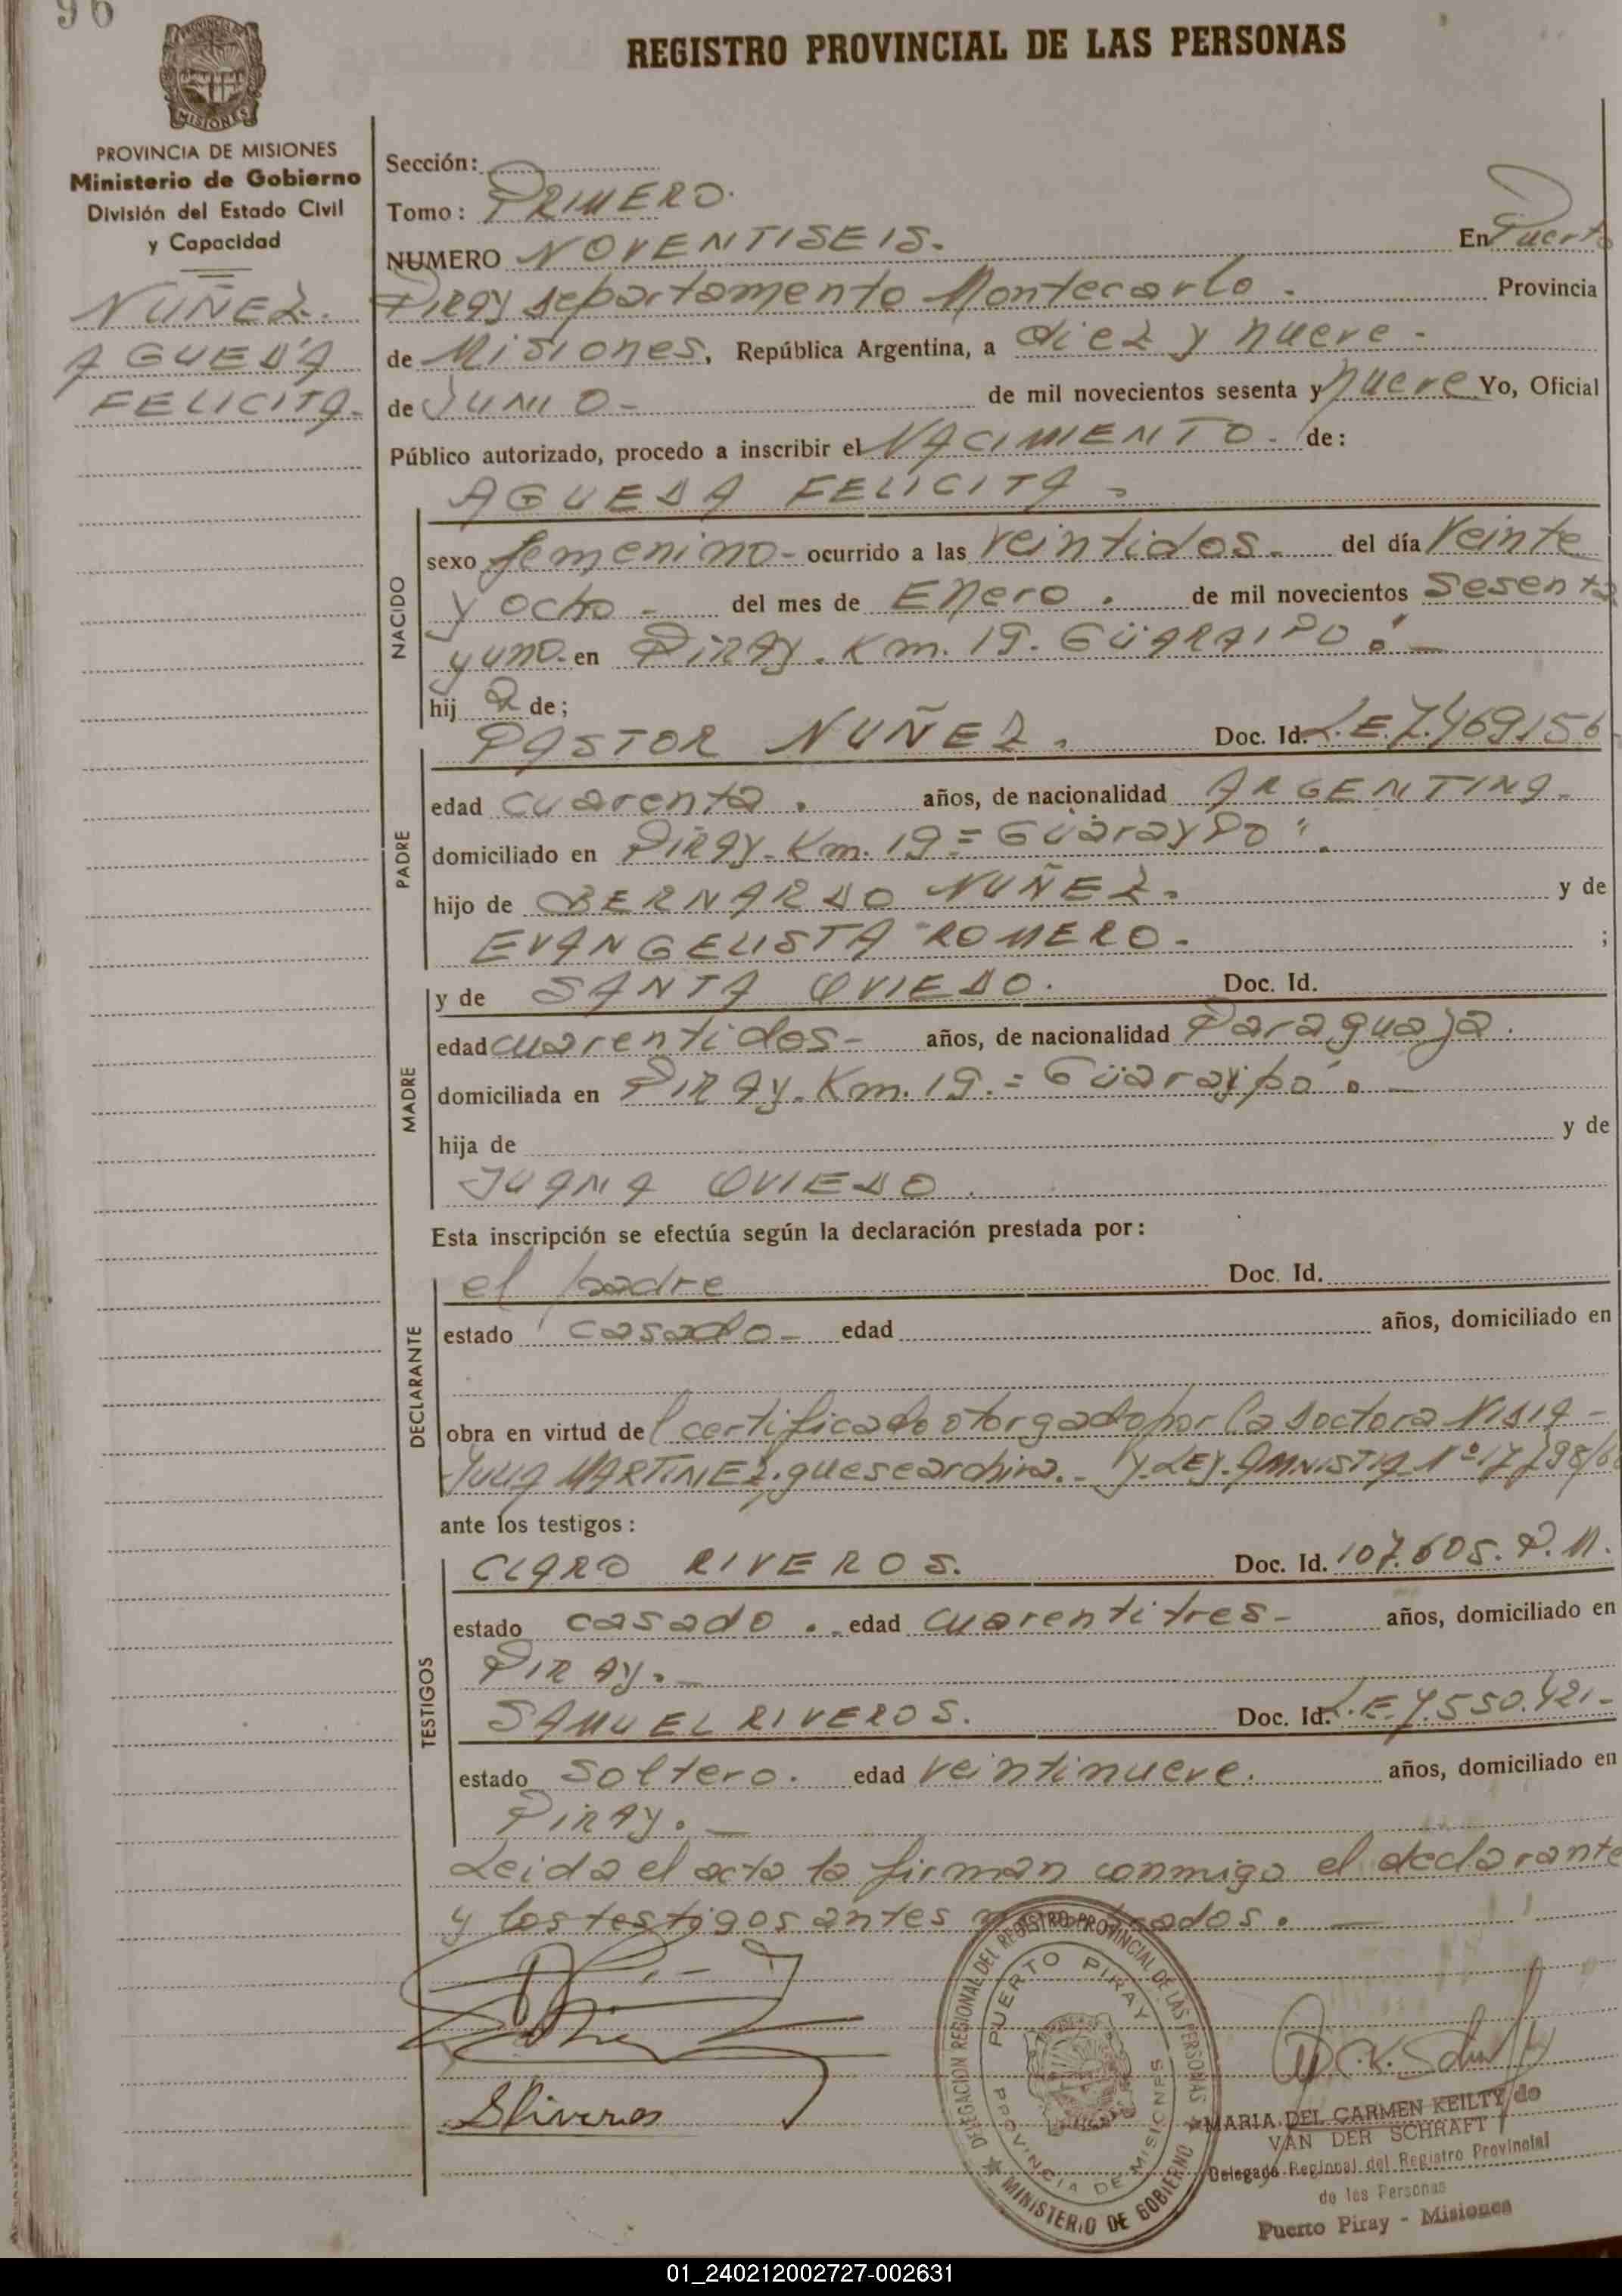 96
REGISTRO PROVINCIAL DE LAS PERSONAS
PROVINCIA DE MISIONES
Ministerio de Gobierno
División del Estado Civil
y Capacidad
NUÑEZ.
AGUEDA
FELICITA-
Sección:
Tomo: PRIMERO.
NUMERO NOVENTISEIS. En Puerto
Piray departamento Montecarlo. Provincia
de Misiones, República Argentina, a diez y nueve-
de JUNIO- de mil novecientos sesenta y nueve Yo, Oficial
Público autorizado, procedo a inscribir el NACIMIENTO. de:
AGUEDA FELICITA-
NACIDO
sexo femenino- ocurrido a las veintidos. del día Veinte
y ocho- del mes de Enero. de mil novecientos Sesenta
y uno. en PIRAY. Km. 19. GÜARAIPO".-
hij a de;
PADRE
PASTOR NUÑEZ. Doc. Id. L.E.7.469.156
edad cuarenta. años, de nacionalidad ARGENTINA-
domiciliado en PIRAY. Km. 19= Güaraypo".
hijo de BERNARDO NUÑEZ. y de
EVANGELISTA ROMERO- ;
MADRE
y de SANTA OVIEDO. Doc. Id.
edad cuarentidos- años, de nacionalidad Paraguaja.
domiciliada en PIRAY. Km. 19.= Güaraÿpo".-
hija de y de
JUANA OVIEDO.
Esta inscripción se efectúa según la declaración prestada por:
DECLARANTE
el padre Doc. Id.
estado casado- edad años, domiciliado en
obra en virtud del certificado otorgado por la Doctora NISIA-
JULIA MARTINEZ. que se archiva.- Y. LEY. AMNISTIA Nº 17.798/6
ante los testigos:
TESTIGOS
CLARO RIVEROS. Doc. Id. 107.605. P.M.
estado casado. edad cuarentitres- años, domiciliado en
PIRAY.-
SAMUEL RIVEROS. Doc. Id. L.E.7.550.421-
estado soltero. edad veintinueve. años, domiciliado en
PIRAY.-
Leida el acta la firman conmigo el declarante
y los testigos antes.-
SRiveros
DELEGACION REGIONAL DEL REGISTRO PROVINCIAL DE LAS PERSONAS
PUERTO PIRAY
PROVINCIA DE MISIONES
MINISTERIO DE GOBIERNO
MARIA DEL CARMEN KEILTY de
VAN DER SCHRAFT
Delegado Regional del Registro Provincial
de las Personas
Puerto Piray - Misiones
01_240212002727-002631